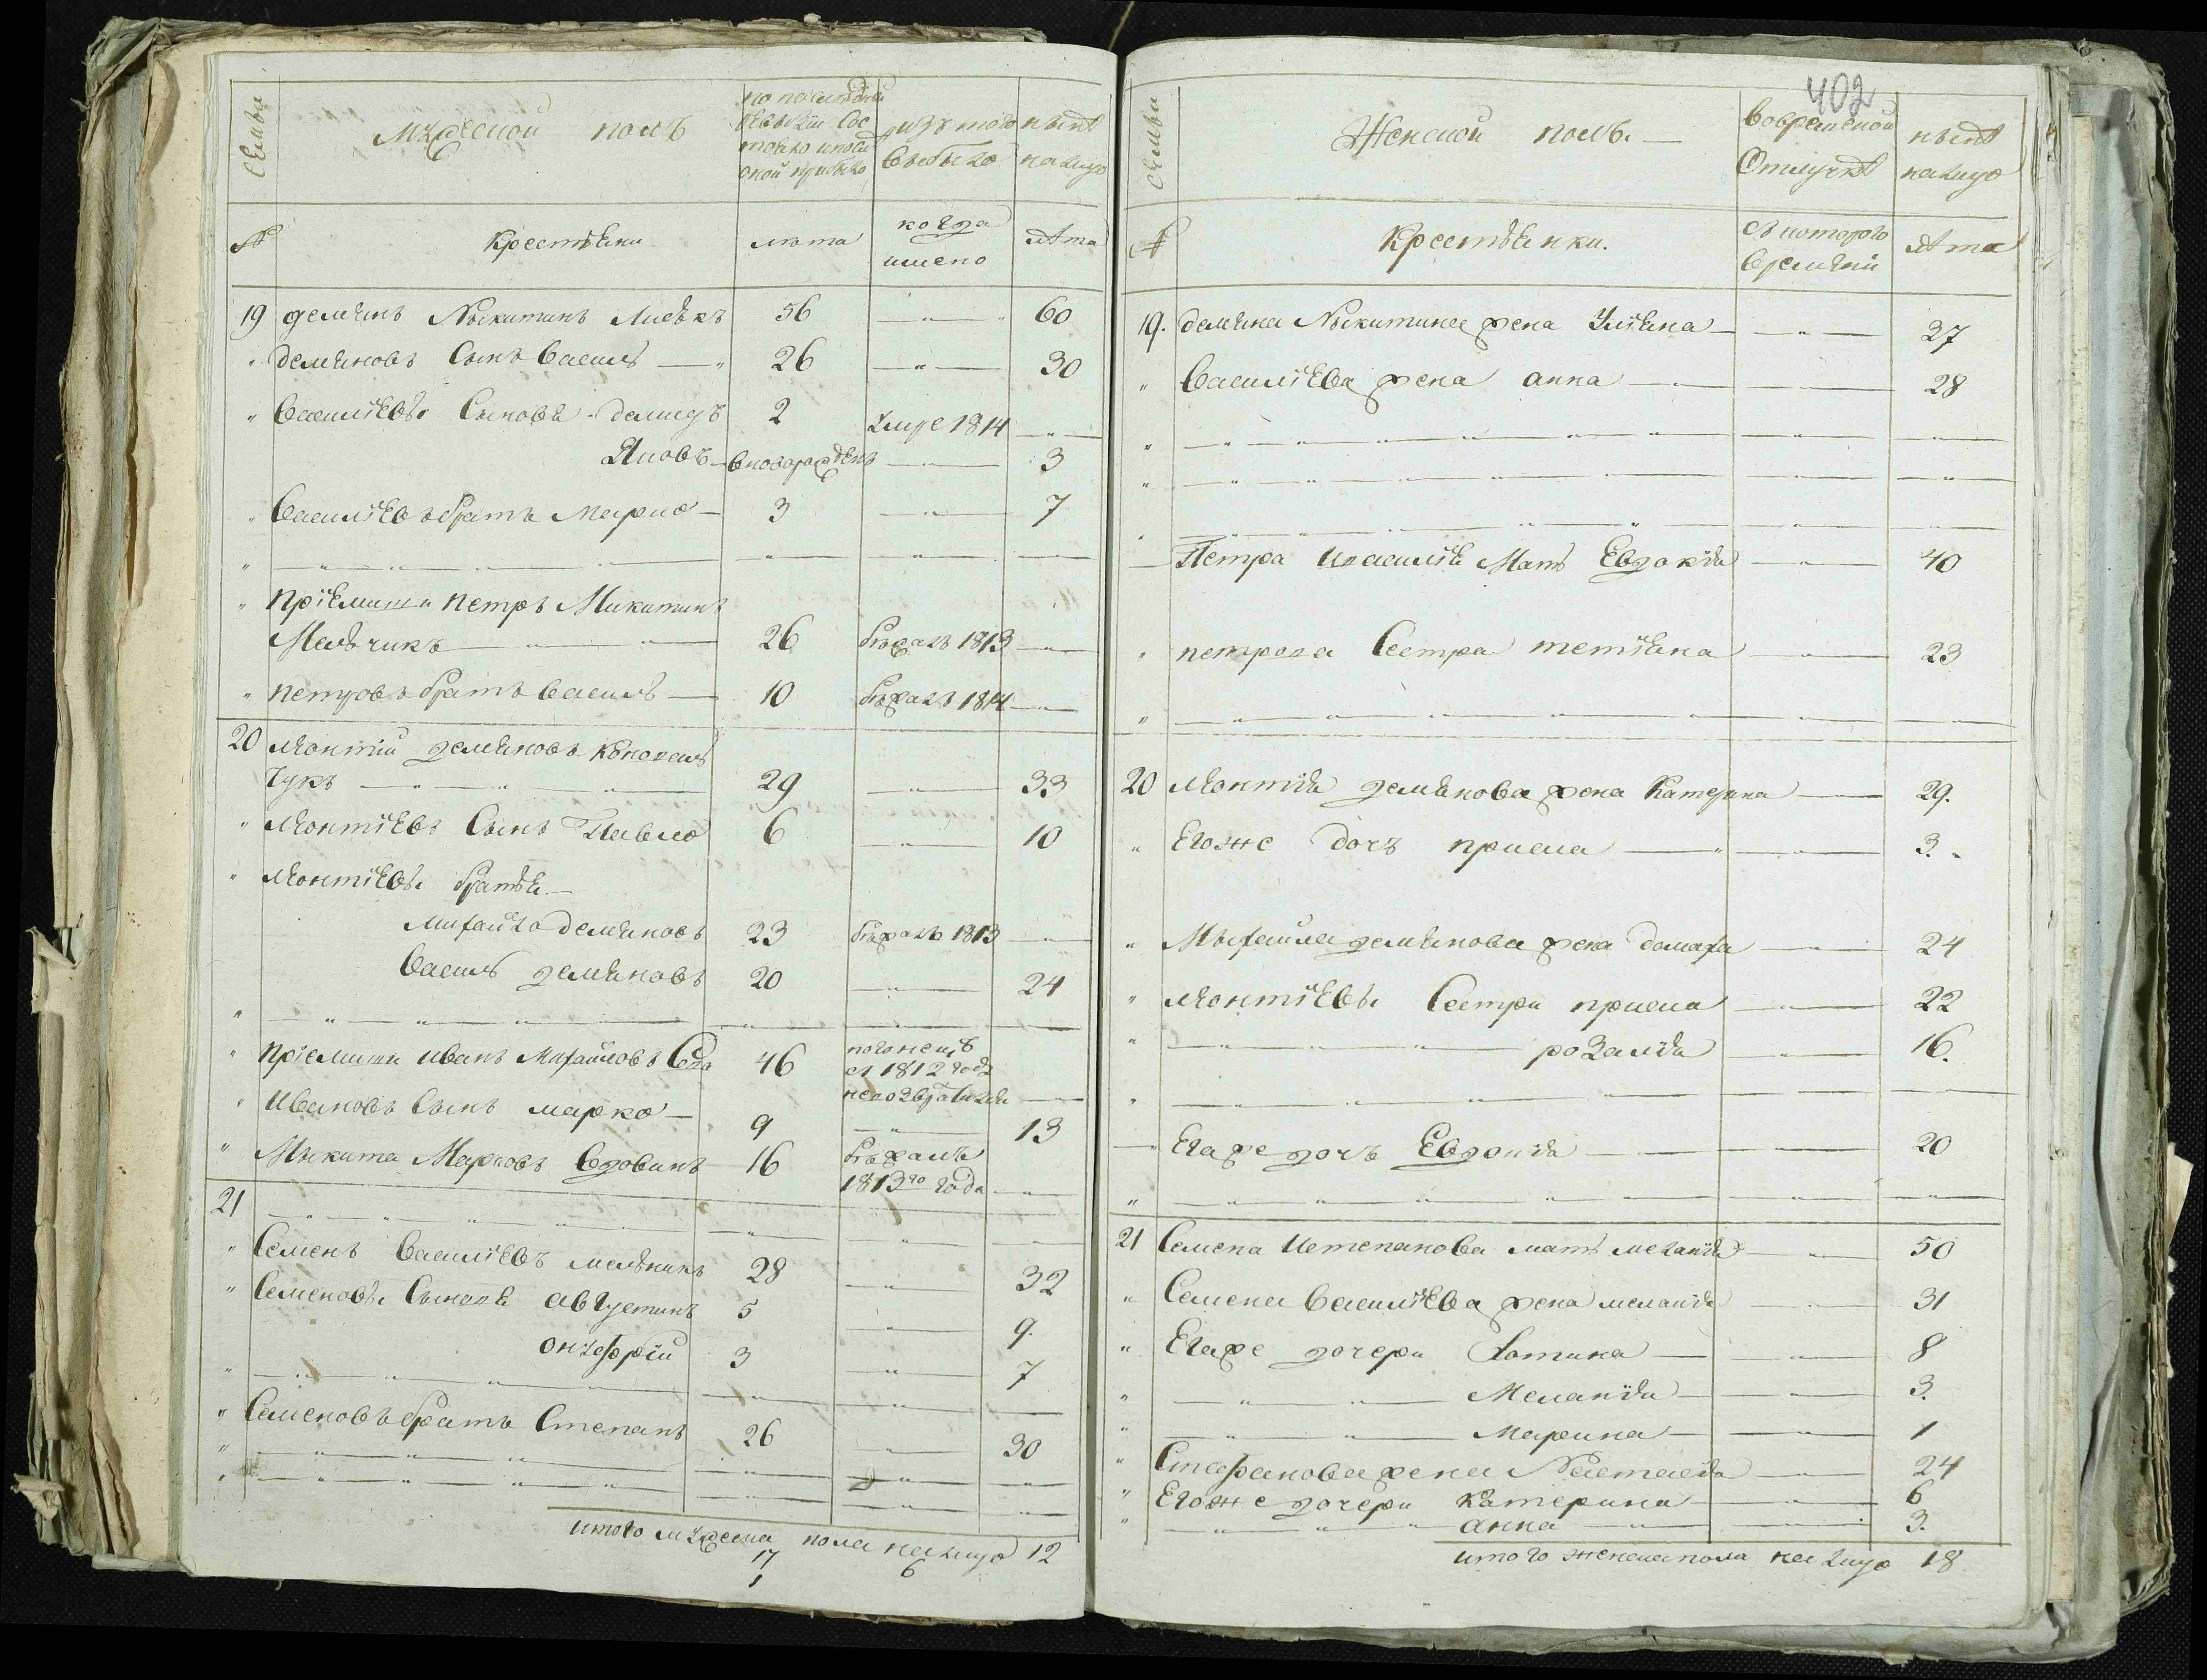 402
Семьи
Мужеской полъ
по последней
ревизіи сос
тояло и после
оной прибыло
изъ того
выбыло
нынѣ
налицо
№
Крестьяни
лѣта
когда
имено
лѣта
19 Демянъ Никитинъ 56 — 60
" Демяновъ Сынъ Василь — 26 — 30
" Василіевы Сыновья Демидъ 2 умре 1814 —
Яковъ — вноворожденъ — 3
" Василіевъ братъ Марко — 3 — 7
" — — — —
" Пріемыши Петръ Микитинъ
Мельчикъ — 26 бежалъ 1813 —
" Петровъ братъ Василь — 10 бежалъ 1814 —
20 Леонтій Демяновъ
чукъ — 29 — 33
" Леонтіевъ Сынъ Павло 6 — 10
" Леонтіевы братья —
Михайло Демяновъ 23 бежалъ 1813 —
Василь Демяновъ 20 — 24
" — — — —
" Пріемыши Иванъ Михайловъ 46
съ 1812 года
—
" Ивановъ Сынъ Марко — 9 — 13
" Мыкита Марковъ Вдовинъ 16 бежалъ
1813го года —
21 — — — —
" Семенъ Василіевъ Мельникъ 28 — 32
" Семеновы Сыновья Августинъ 5 — 9.
Онуфрій 3 — 7
" — — — —
" Семеновъ братъ Степанъ 26 — 30
" — — — —
" — — — —
итого мужеска пола налицо 12
17 6
1
Семьи
Женской полъ. —
Вовременой
Отлучкѣ
нынѣ
налицо
№
Крестьянки.
Съ которого
времяни
лѣта
19. Демяна Никитина жена Уліяна — — 27
" Василіева жена анна — — 28
" — — —
" — — —
" — — —
— Петра Ивасилія Мать Евдокія — 40
" Петрова Сестра Тетіяна — 23
" — — —
20 Леонтія Демянова жена Катерина — 29.
" Егоже дочъ приска — — 3.
" Мыхайла демянова жена домаха — 24
" Леонтіевы Сестри приска — 22
" — — розалія — 16.
" — — —
— Егаже дочъ Евдокія — — 20
" — — —
21 Семена Истепанова мать меланія — 50
" Семена Василіева жена меланія — 31
" Егаже дочери Хотина — — 8
" — — Меланія — — 3.
" — — Марина — — 1
" Стефанова жена Настасія — 24
" Егоже дочери Катерина — — 6
" — — анна — — 3.
итого женска пола налицо 18